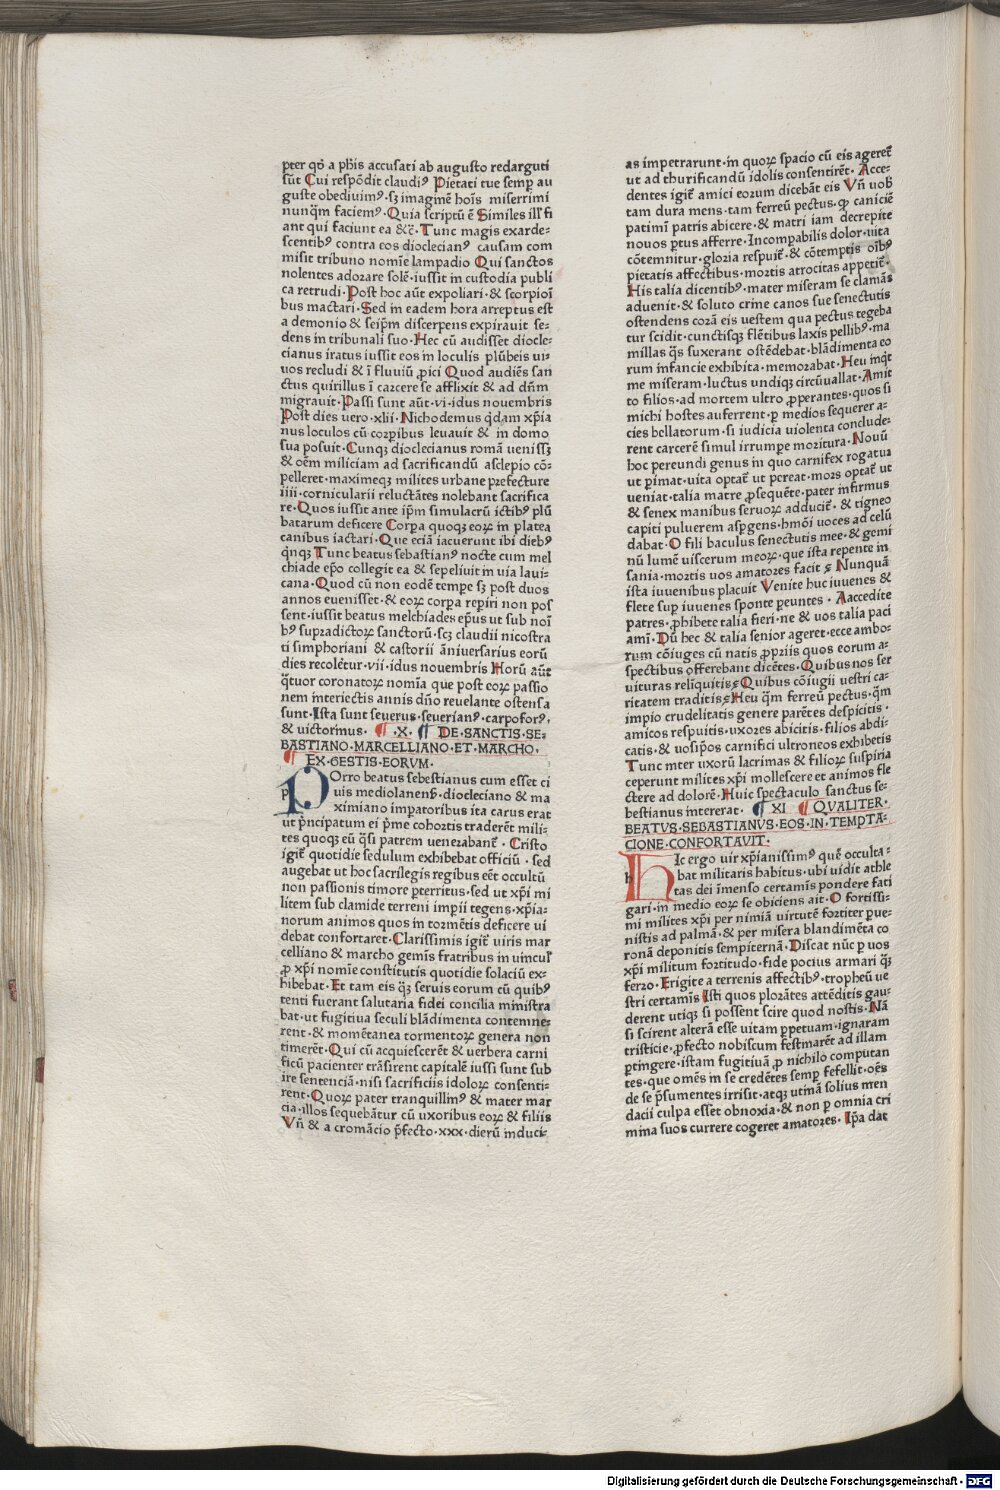 pter qꝺ a pħis accusati ab augusto redarguti
sūt Cui respōdit claudiꝰ Pietati tue semꝑ au
guste obediuimꝰ·sꝫ imaginē hoīs miserrimi
nunq̄m faciemꝰ·Quia scriptū ē Similes illꝭ fi
ant qui faciunt ea &c̄·Tunc magis exarde-
scentibꝰ contra eos dioclecianꝰ causam com
misit tribuno nomīe lampadio Qui sanctos
nolentes adorare solē·iussit in custodia publi
ca retrudi·Post hoc aūt expoliari·& scorpioī
bus mactari·Sed in eadem hora arreptus est
a demonio & seip̄m discerpens expirauit se-
dens in tribunali suo·Hec cū audisset diocle-
cianus iratus iussit eos in loculis plūbeis ui-
uos recludi & ī fluuiū ꝓici Quod audiēs san
ctus quirillus ī carcere se afflixit & ad dn̄m
migrauit·Passi sunt aūt·vi·idus nouembris
Post dies uero·xlii·Nichodemus q̇dam xp̄ia
nus loculos cū corꝑibus leuauit & in domo
sua posuit·Cunqꝫ dioclecianus romā uenissꝫ
& oēm miliciam ad sacrificandū asclepio cō-
pelleret·maximeqꝫ milites urbane prefecture
iiii·cornicularii reluctātes nolebant sacrifica
re·Quos iussit ante ip̄m simulacrū ictibꝰ plū
batarum deficere Corꝑa quoqꝫ eoꝝ in platea
canibus iactari·Que eciā iacuerunt ibi diebꝰ
q̇nqꝫ Tunc beatus sebastianꝰ nocte cum mel
chiade ep̄o collegit ea & sepeliuit in uia laui-
cana·Quod cū non eodē tempe sꝫ post duos
annos euenisset·& eoꝝ corꝑa reperiri non pos
sent·iussit beatus melchiades ep̄us ut sub noī
bꝰ supradictoꝝ sanctorū·scꝫ claudii nicostra
ti simphoriani & castorii āniuersarius eorū
dies recolētur·vii·idus nouembris Horū aūt
q̇tuor coronatoꝝ nomīa que post eoꝝ passio
nem interiectis annis dn̄o reuelante ostensa
sunt·Ista sunt seuerus·seuerianꝰ·carpoforꝰ·
& uictorinus· ¶ ·X· ¶ DE·SANCTIS·SE-
BASTIANO·MARCELLIANO·ET·MARCHO·
¶ EX·GESTIS·EORVM·
POrro beatus sebestianus cum esset ci
uis mediolanenſ·diocleciano & ma
ximiano imꝑatoribus ita carus erat
ut p̄ncipatum ei p̄me cohortis traderēt mili-
tes quoqꝫ eū q̄si patrem uenerabanť· Cristo
igiť quotidie sedulum exhibebat officiū · sed
augebat ut hoc sacrilegis regibus eēt occultū
non passionis timore ꝑterritus·sed ut xp̄i mi
litem sub clamide terreni imꝑii tegens·xp̄ia-
norum animos quos in tormētis deficere ui
debat confortaret·Clarissimis igiť uiris mar
celliano & marcho gemis fratribus in uinculꝭ
ꝓ xp̄i nomīe constitutis quotidie solaciū ex-
hibebat·Et tam eis q̄ꝫ seruis eorum cū quibꝰ
tenti fuerant salutaria fidei concilia ministra
bat·ut fugitiua seculi blādimenta contemne-
rent·& momētanea tormentoꝝ genera non
timerēt·Qui cū acquiescerēt & uerbera carni
ficū pacienter trāsirent capitalē iussi sunt sub
ire sentenciā·nisi sacrificiis idoloꝝ consenti-
rent·Quoꝝ pater tranquillinꝰ & mater mar
cia·illos sequebātur cū uxoribus eoꝝ & filiis
Vn̄ & a cromācio p̄fecto·xxx·dierū induci-
as impetrarunt·in quoꝝ spacio cū eis ageret
ut ad thurificandū idolis consentirēt·Acce-
dentes igiť amici eorum dicebāt eis Vn̄ uob
tam dura mens·tam ferreū pectus·ꝙ caniciē
patimī patris abicere·& matri iam decrepite
nouos ꝑtus afferre·Incomꝑabilis dolor·uita
cōtemnitur·gloria respuiť·& cōtemptis oībꝰ
pietatis affectibus·mortis atrocitas appetiť·
His talia dicentibꝰ·mater miseram se clamās
aduenit·& soluto crine canos sue senectutis
ostendens corā eis uestem qua pectus tegeba
tur scidit·cunctisqꝫ flētibus laxis pellibꝰ·ma
millas q̄s suxerant ostēdebat·blādimenta eo
rum infancie exhibita·memorabat·Heu inq̇t
me miseram·luctus undiqꝫ circūuallat·Amit
to filios·ad mortem ultro ꝓperantes·quos si
michi hostes auferrent·ꝑ medios sequerer a-
cies bellatorum·si iudicia uiolenta conclude-
rent carcerē simul irrumpe moritura·Nouū
hoc pereundi genus in quo carnifex rogatur
ut ꝑimat·uita optať ut pereat·mors optať ut
ueniat·talia matre ꝓsequēte·pater infirmus
& senex manibus seruoꝝ adduciť· & tigneo
capiti puluerem aspgens·hmōi uoces ad celū
dabat·O fili baculus senectutis mee·& gemi
nū lumē uiscerum meoꝝ·que ista repente in
sania·mortis uos amatores facit ꝭ Nunquā
ista iuuenibus placuit Venite huc iuuenes &
flete suꝑ iuuenes sponte ꝑeuntes· Aaccedite
patres·ꝓhibete talia fieri·ne & uos talia paci
amī·Dū hec & talia senior ageret·ecce ambo-
rum cōiuges cū natis ꝓpriis quos eorum a-
spectibus offerebant dicētes·Quibus nos ser
uituras relīquitis ꝭ Quibus cōiugii uestri ca-
ritatem traditis ꝭ Heu q̄m ferreū pectus·q̄m
impio crudelitatis genere parētes despicitis·
amicos respuitis·uxores abicitis·filios abdi-
catis·& uosip̄os carnifici ultroneos exhibetis
Tunc inter uxorū lacrimas & filioꝝ suspiria
ceperunt milites xp̄i mollescere et animos fle
ctere ad dolorē·Huic spectaculo sanctus se-
bestianus intererat· ¶ XI ¶ QVALITER·
BEATVS·SEBASTIANVS·EOS·IN·TEMPTA-
CIONE·CONFORTAVIT·
HIc ergo uir xp̄ianissimꝰ quē occulta-
bat militaris habitus·ubi uidit athle
tas dei īmenso certamīs pondere fati
gari·in medio eoꝝ se obiciens ait·O fortissi-
mi milites xp̄i per nimiā uirtutē fortiter ꝑue-
nistis ad palmā·& per misera blandimēta co
ronā deponitis sempiternā·Discat nūc ꝑ uos
xp̄i militum fortitudo·fide pocius armari q̄ꝫ
ferro·Erigite a terrenis affectibꝰ·tropheū ue
stri certamīs Isti quos plorātes attēditis gau-
derent utiqꝫ si possent scire quod nostis·Nā
si scirent alterā esse uitam ꝑpetuam·ignaram
tristicie·ꝓfecto nobiscum festinarēt ad illam
ꝑtingere·istam fugitiuā ꝓ nichilo computan
tes·que omēs in se credētes semꝑ fefellit·oēs
de se p̄sumentes irrisit·atqꝫ utinā solius men
dacii culpa esset obnoxia·& non ꝑ omnia cri
mina suos currere cogeret amatores·Ip̄a dat
Digitalisierung gefördert durch die Deutsche Forschungsgemeinschaft · DFG